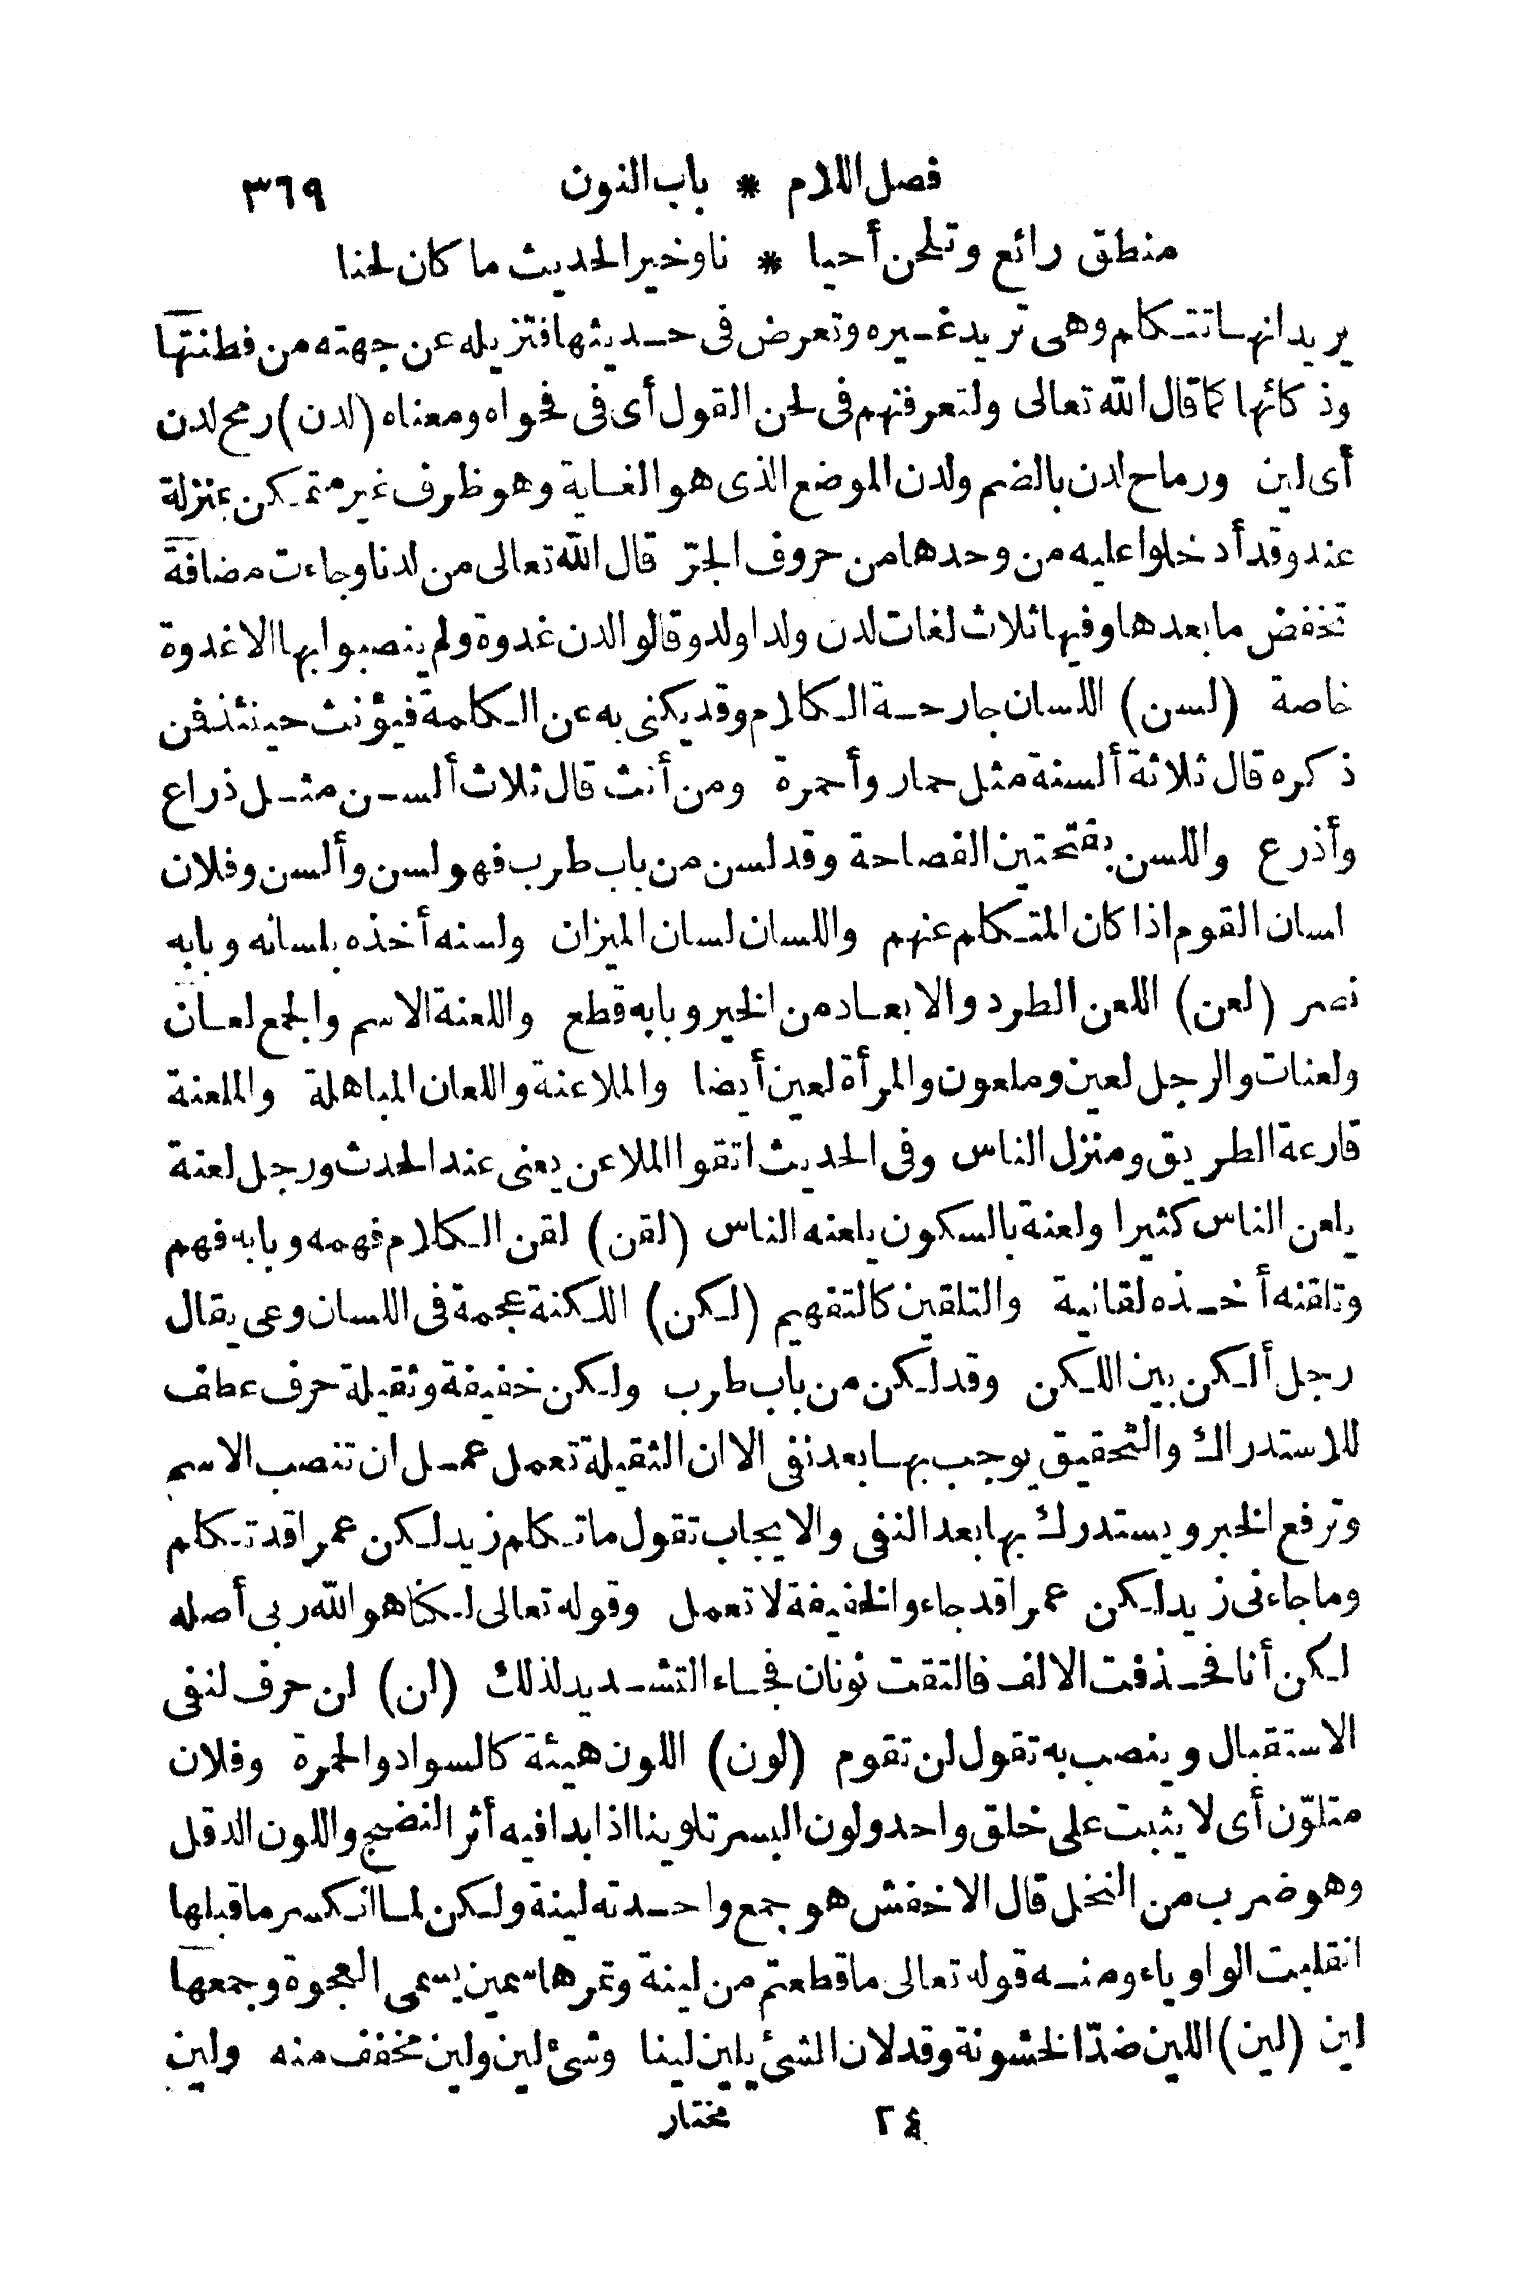 فصل اللام * باب النون ٣٦٩
منطق رائع وتلحن أحيا * ناوخير الحديث ما كان لحنا
يريد انها تتكلم وهى تريد غيره وتعرض فى حديثها فتزيله عن جهته من فطنتها
وذكائها كما قال الله تعالى ولتعرفنهم فى لحن القول أى فى فحواه ومعناه (لدن) رمح لدن
أى لين ورماح لدن بالضم ولدن الموضع الذى هو الغاية وهو ظرف غير متمكن بمنزلة
عند وقد أدخلوا عليه من وحدها من حروف الجرّ قال الله تعالى من لدنا وجاءت مضافة
تخفض ما بعدها وفيها ثلاث لغات لدن ولدا ولد وقالوا لدن غدوة ولم ينصبوا بها الا غدوة
خاصة (لسن) اللسان جارحة الكلام وقد يكنى به عن الكلمة فيؤنث حينئذ فمن
ذكره قال ثلاثة ألسنة مثل حمار وأحمرة ومن أنث قال ثلاث ألسن مثل ذراع
وأذرع واللسن بفتحتين الفصاحة وقد لسن من باب طرب فهو لسن وألسن وفلان
لسان القوم اذا كان المتكلم عنهم واللسان لسان الميزان ولسنه أخذه بلسانه وبابه
نصر (لعن) اللعن الطرد والابعاد من الخير وبابه قطع واللعنة الاسم والجمع لعان
ولعنات والرجل لعين وملعون والمرأة لعين أيضا والملاعنة واللعان المباهلة والملعنة
قارعة الطريق ومنزل الناس وفى الحديث اتقوا الملاعن يعنى عند الحدث ورجل لعنة
يلعن الناس كثيرا ولعنة بالسكون يلعنه الناس (لقن) لقن الكلام فهمه وبابه فهم
وتلقنه أخذه لقانية والتلقين كالتفهيم (لكن) اللكنة عجمة فى اللسان وعى يقال
رجل ألكن بين اللكن وقد لكن من باب طرب ولكن خفيفة وثقيلة حرف عطف
للاستدراك والتحقيق يوجب بها بعد نفى الا ان الثقيلة تعمل عمل ان تنصب الاسم
وترفع الخبر ويستدرك بها بعد النفى والايجاب تقول ما تكلم زيد لكن عمرا قد تكلم
وما جاءنى زيد لكن عمرا قد جاء والخفيفة لا تعمل وقوله تعالى لكنا هو الله ربى أصله
لكن أنا فحذفت الالف فالتقت نونان فجاء التشديد لذلك (لن) لن حرف لنفى
الاستقبال وينصب به تقول لن تقوم (لون) اللون هيئة كالسواد والحمرة وفلان
متلوّن أى لا يثبت على خلق واحد ولون البسر تلوينا اذا بدا فيه أثر النضج واللون الدقل
وهو ضرب من النخل قال الاخفش هو جمع واحدته لينة ولكن لما انكسر ما قبلها
انقلبت الواو ياء ومنه قوله تعالى ما قطعتم من لينة وتمرها سمين يسمى العجوة وجمعها
لين (لين) اللين ضدّ الخشونة وقد لان الشئ يلين لينا وشئ لين ولين مخفف منه ولين
٢٤ مختار